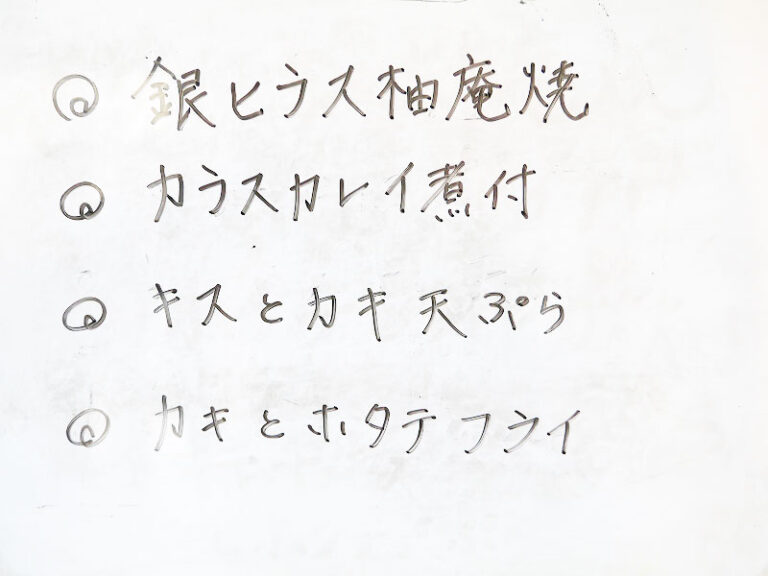 ◎ 銀ヒラス柚庵焼
◎ カラスカレイ煮付
◎ キスとカキ天ぷら
◎ カキとホタテフライ